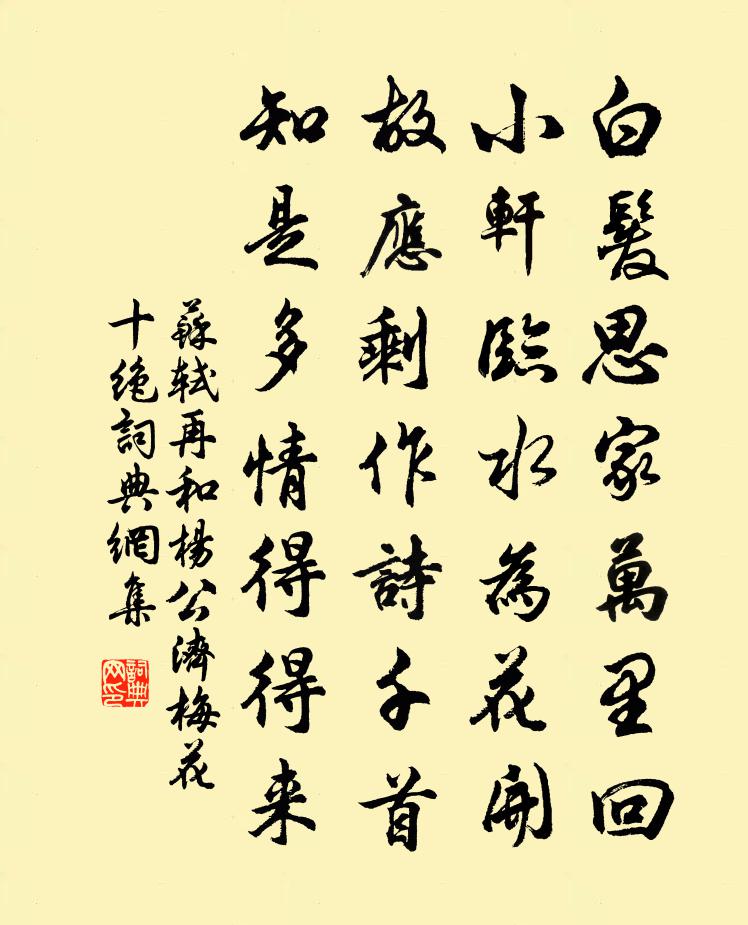 白髮思家萬里回
小軒臨水為花開
故應剩作詩千首
知是多情得得来
蘇軾再和楊公濟梅花
十絶詞典網集
詞典网印